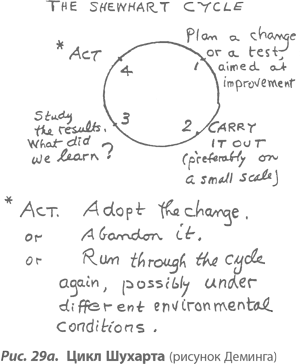 THE SHEWHART CYCLE
* ACT
Plan a change
or a test,
aimed at
improvement
4
1
Study
the results.
What did
we learn?
3
2
CARRY
IT OUT
(preferably on
a small scale)
* ACT. Adopt the change.
or Abandon it.
or Run through the cycle
again, possibly under
different environmental
conditions.
Рис. 29а. Цикл Шухарта (рисунок Деминга)